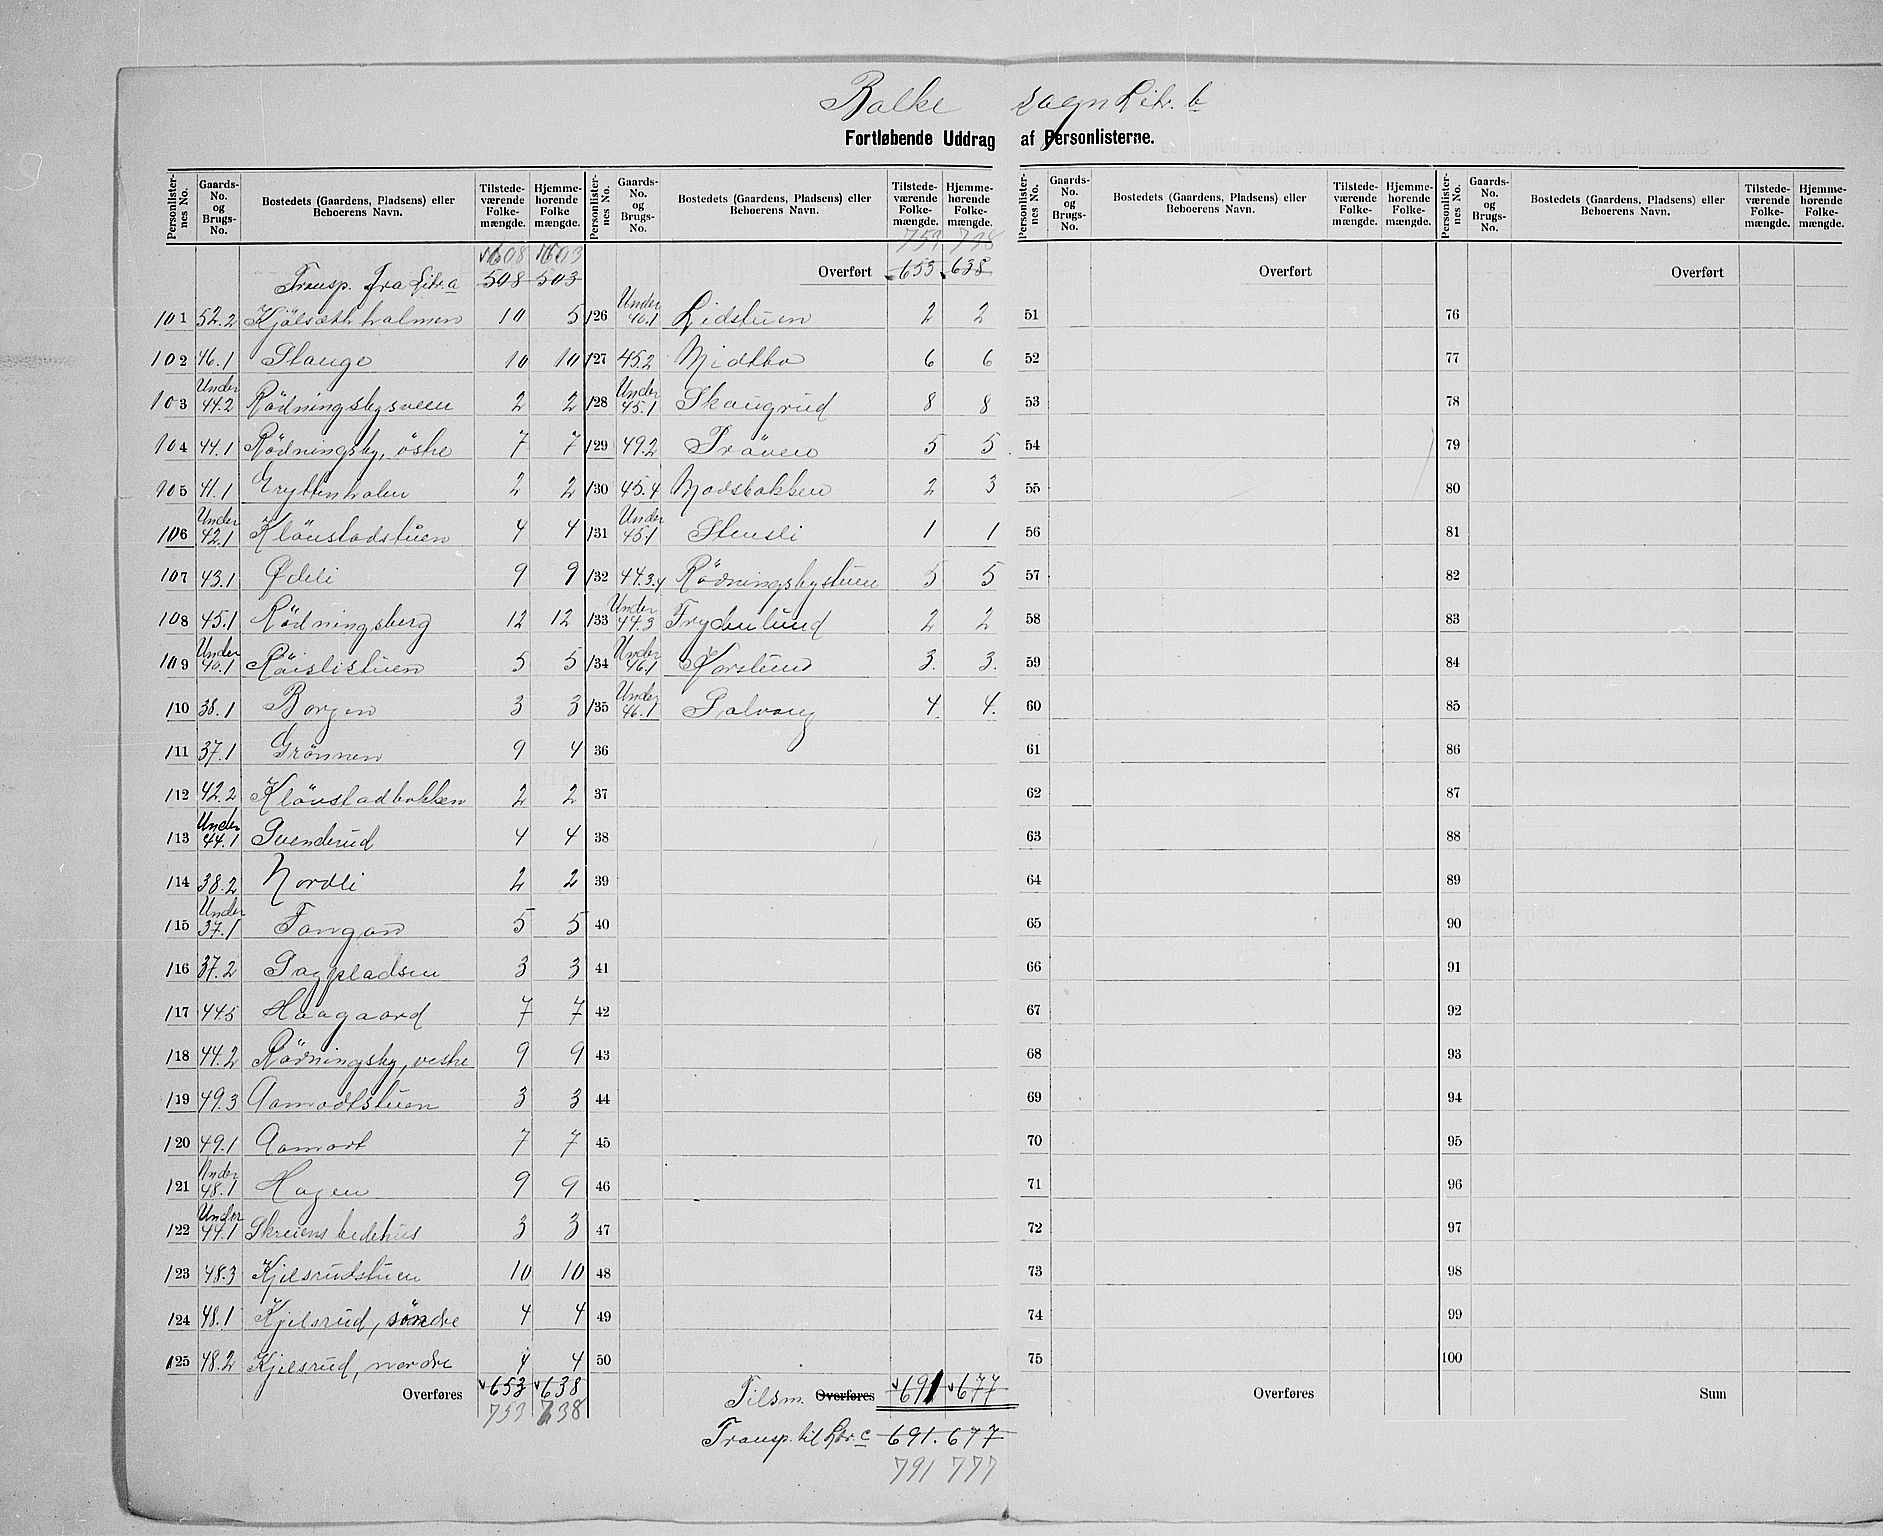 Balke sogn Litr. b
Fortløbende Uddrag af Personlisterne.
Personlister-nes No. | Gaards-No. og Brugs-No. | Bostedets (Gaardens, Pladsens) eller Beboerens Navn. | Tilstede-værende Folke-mængde. | Hjemme-hørende Folke mængde.
608 603
Transp. fra Litr. a 508 503
101 52.2 Kjölsæthholmen 10 5
102 46.1 Stange 10 10
103 Under 44.2 Rödningsbysveen 2 2
104 44.1 Rödningsby, östre 7 7
105 41.1 Gryttenholen 2 2
106 Under 42.1 Klöustadstuen 4 4
107 43.1 Ødeli 9 9
108 45.1 Rödningsberg 12 12
109 Under 40.1 Röislistuen 5 5
110 38.1 Borgen 3 3
111 37.1 Grönnen 9 4
112 42.2 Klöustadbakken 2 2
113 Under 44.1 Svenderud 4 4
114 38.2 Nordli 2 2
115 Under 37.1 Fangan 5 5
116 37.2 Sagpladsen 3 3
117 44.5 Haagaard 7 7
118 44.2 Rödningsby, vestre 9 9
119 49.3 Aamodtstuen 3 3
120 49.1 Aamodt 7 7
121 Under 48.1 Hagen 9 9
122 Under 44.1 Skreiens bedehus 3 3
123 48.3 Kjelsrudstuen 10 10
124 48.1 Kjelsrud, söndre 4 4
125 48.2 Kjelsrud, nordre 4 4
Overføres 653 638
753 738
Personlister-nes No. | Gaards-No. og Brugs-No. | Bostedets (Gaardens, Pladsens) eller Beboerens Navn. | Tilstede-værende Folke-mængde. | Hjemme-hørende Folke-mængde.
753 738
Overført 653 638
126 Under 40.1 Lidstuen 2 2
127 45.2 Midtbo 6 6
128 Under 45.1 Skaugrud 8 8
129 49.2 Pröven 5 5
130 45.4 Madsbakken 2 3
131 Under 45.1 Stensli 1 1
132 44.3.4 Rödningsbystuen 5 5
133 Under 44.3 Frydenlund 2 2
134 Under 46.1 3. 3.
135 Under 46.1 Solvang 4. 4.
36
37
38
39
40
41
42
43
44
45
46
47
48
49
50
Tilsm. Overføres 691 677
Transp. til Litr. c 691. 677
791 777
Personlister-nes No. | Gaards-No. og Brugs-No. | Bostedets (Gaardens, Pladsens) eller Beboerens Navn. | Tilstede-værende Folke-mængde. | Hjemme-hørende Folke-mængde.
Overført
51
52
53
54
55
56
57
58
59
60
61
62
63
64
65
66
67
68
69
70
71
72
73
74
75
Overføres
Personlister-nes No. | Gaards-No. og Brugs-No. | Bostedets (Gaardens, Pladsens) eller Beboerens Navn. | Tilstede-værende Folke-mængde. | Hjemme-hørende Folke-mængde.
Overført
76
77
78
79
80
81
82
83
84
85
86
87
88
89
90
91
92
93
94
95
96
97
98
99
100
Sum